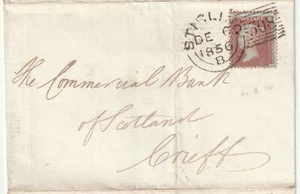 STIRLI
DE 6
1856
B
The Commercial Bank
of Scotland
Crieff